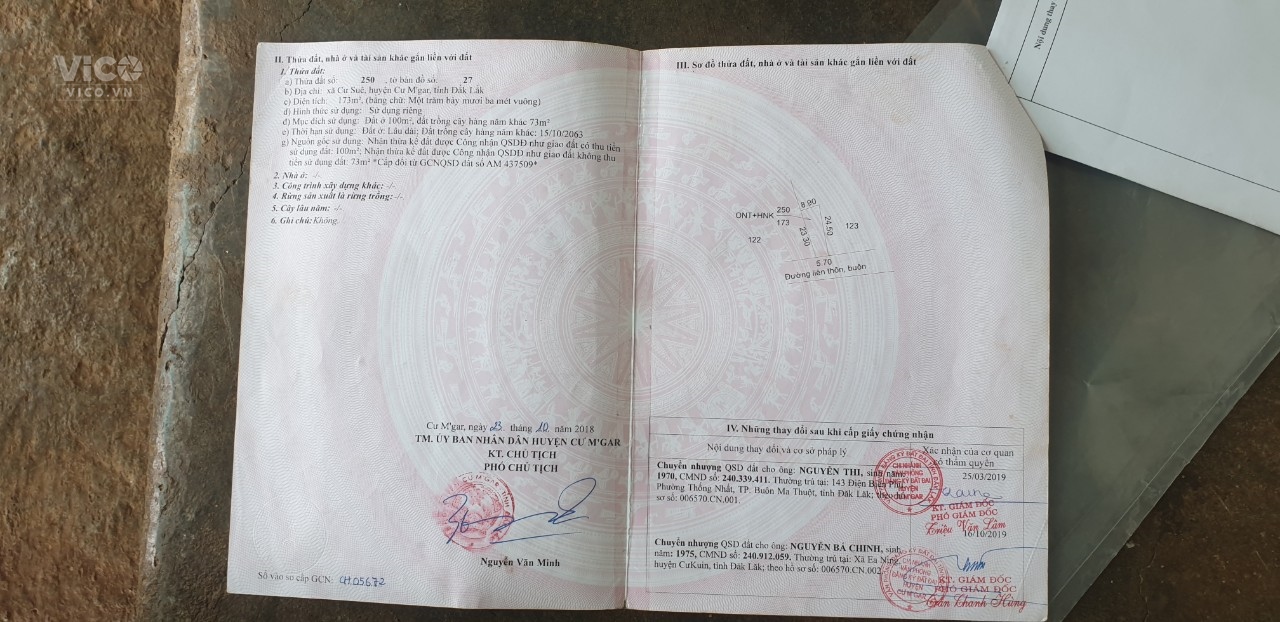 VICO
VICO.VN
Nội dung thay
II. Thửa đất, nhà ở và tài sản khác gắn liền với đất
1. Thửa đất:
a) Thửa đất số: 250 , tờ bản đồ số: 27
b) Địa chỉ: xã Cư Suê, huyện Cư M'gar, tỉnh Đắk Lắk
c) Diện tích: 173m², (bằng chữ: Một trăm bảy mươi ba mét vuông)
d) Hình thức sử dụng: Sử dụng riêng
đ) Mục đích sử dụng: Đất ở 100m², đất trồng cây hàng năm khác 73m²
e) Thời hạn sử dụng: Đất ở: Lâu dài; Đất trồng cây hàng năm khác: 15/10/2063
g) Nguồn gốc sử dụng: Nhận thừa kế đất được Công nhận QSDĐ như giao đất có thu tiền
sử dụng đất: 100m²; Nhận thừa kế đất được Công nhận QSDĐ như giao đất không thu
tiền sử dụng đất: 73m² *Cấp đổi từ GCNQSD đất số AM 437509*
2. Nhà ở: -/-
3. Công trình xây dựng khác: -/-
4. Rừng sản xuất là rừng trồng: -/-
5. Cây lâu năm: -/-
6. Ghi chú: Không.
Cư M'gar, ngày 23 tháng 10 năm 2018
TM. ỦY BAN NHÂN DÂN HUYỆN CƯ M'GAR
KT. CHỦ TỊCH
PHÓ CHỦ TỊCH
Nguyễn Văn Minh
Số vào sổ cấp GCN: CH.05672
III. Sơ đồ thửa đất, nhà ở và tài sản khác gắn liền với đất
ONT+HNK
250
173
8.90
24.50
23.30
5.70
122
123
Đường liên thôn, buôn
IV. Những thay đổi sau khi cấp giấy chứng nhận
Nội dung thay đổi và cơ sở pháp lý
Xác nhận của cơ quan
có thẩm quyền
Chuyển nhượng QSD đất cho ông: NGUYỄN THI, sinh năm:
1970, CMND số: 240.339.411. Thường trú tại: 143 Điện Biên Phủ,
Phường Thống Nhất, TP. Buôn Ma Thuột, tỉnh Đắk Lắk; theo hồ
sơ số: 006570.CN.001.
25/03/2019
CHI NHÁNH
VĂN PHÒNG
ĐĂNG KÝ ĐẤT ĐAI
HUYỆN
CƯ M'GAR
KT. GIÁM ĐỐC
PHÓ GIÁM ĐỐC
Triệu Văn Lâm
16/10/2019
Chuyển nhượng QSD đất cho ông: NGUYỄN BÁ CHINH, sinh
năm: 1975, CMND số: 240.912.059. Thường trú tại: Xã Ea Ning,
huyện CuKuin, tỉnh Đắk Lắk; theo hồ sơ số: 006570.CN.002
CHI NHÁNH
VĂN PHÒNG
ĐĂNG KÝ ĐẤT ĐAI
HUYỆN
CƯ M'GAR
KT. GIÁM ĐỐC
PHÓ GIÁM ĐỐC
Trần Thanh Hùng